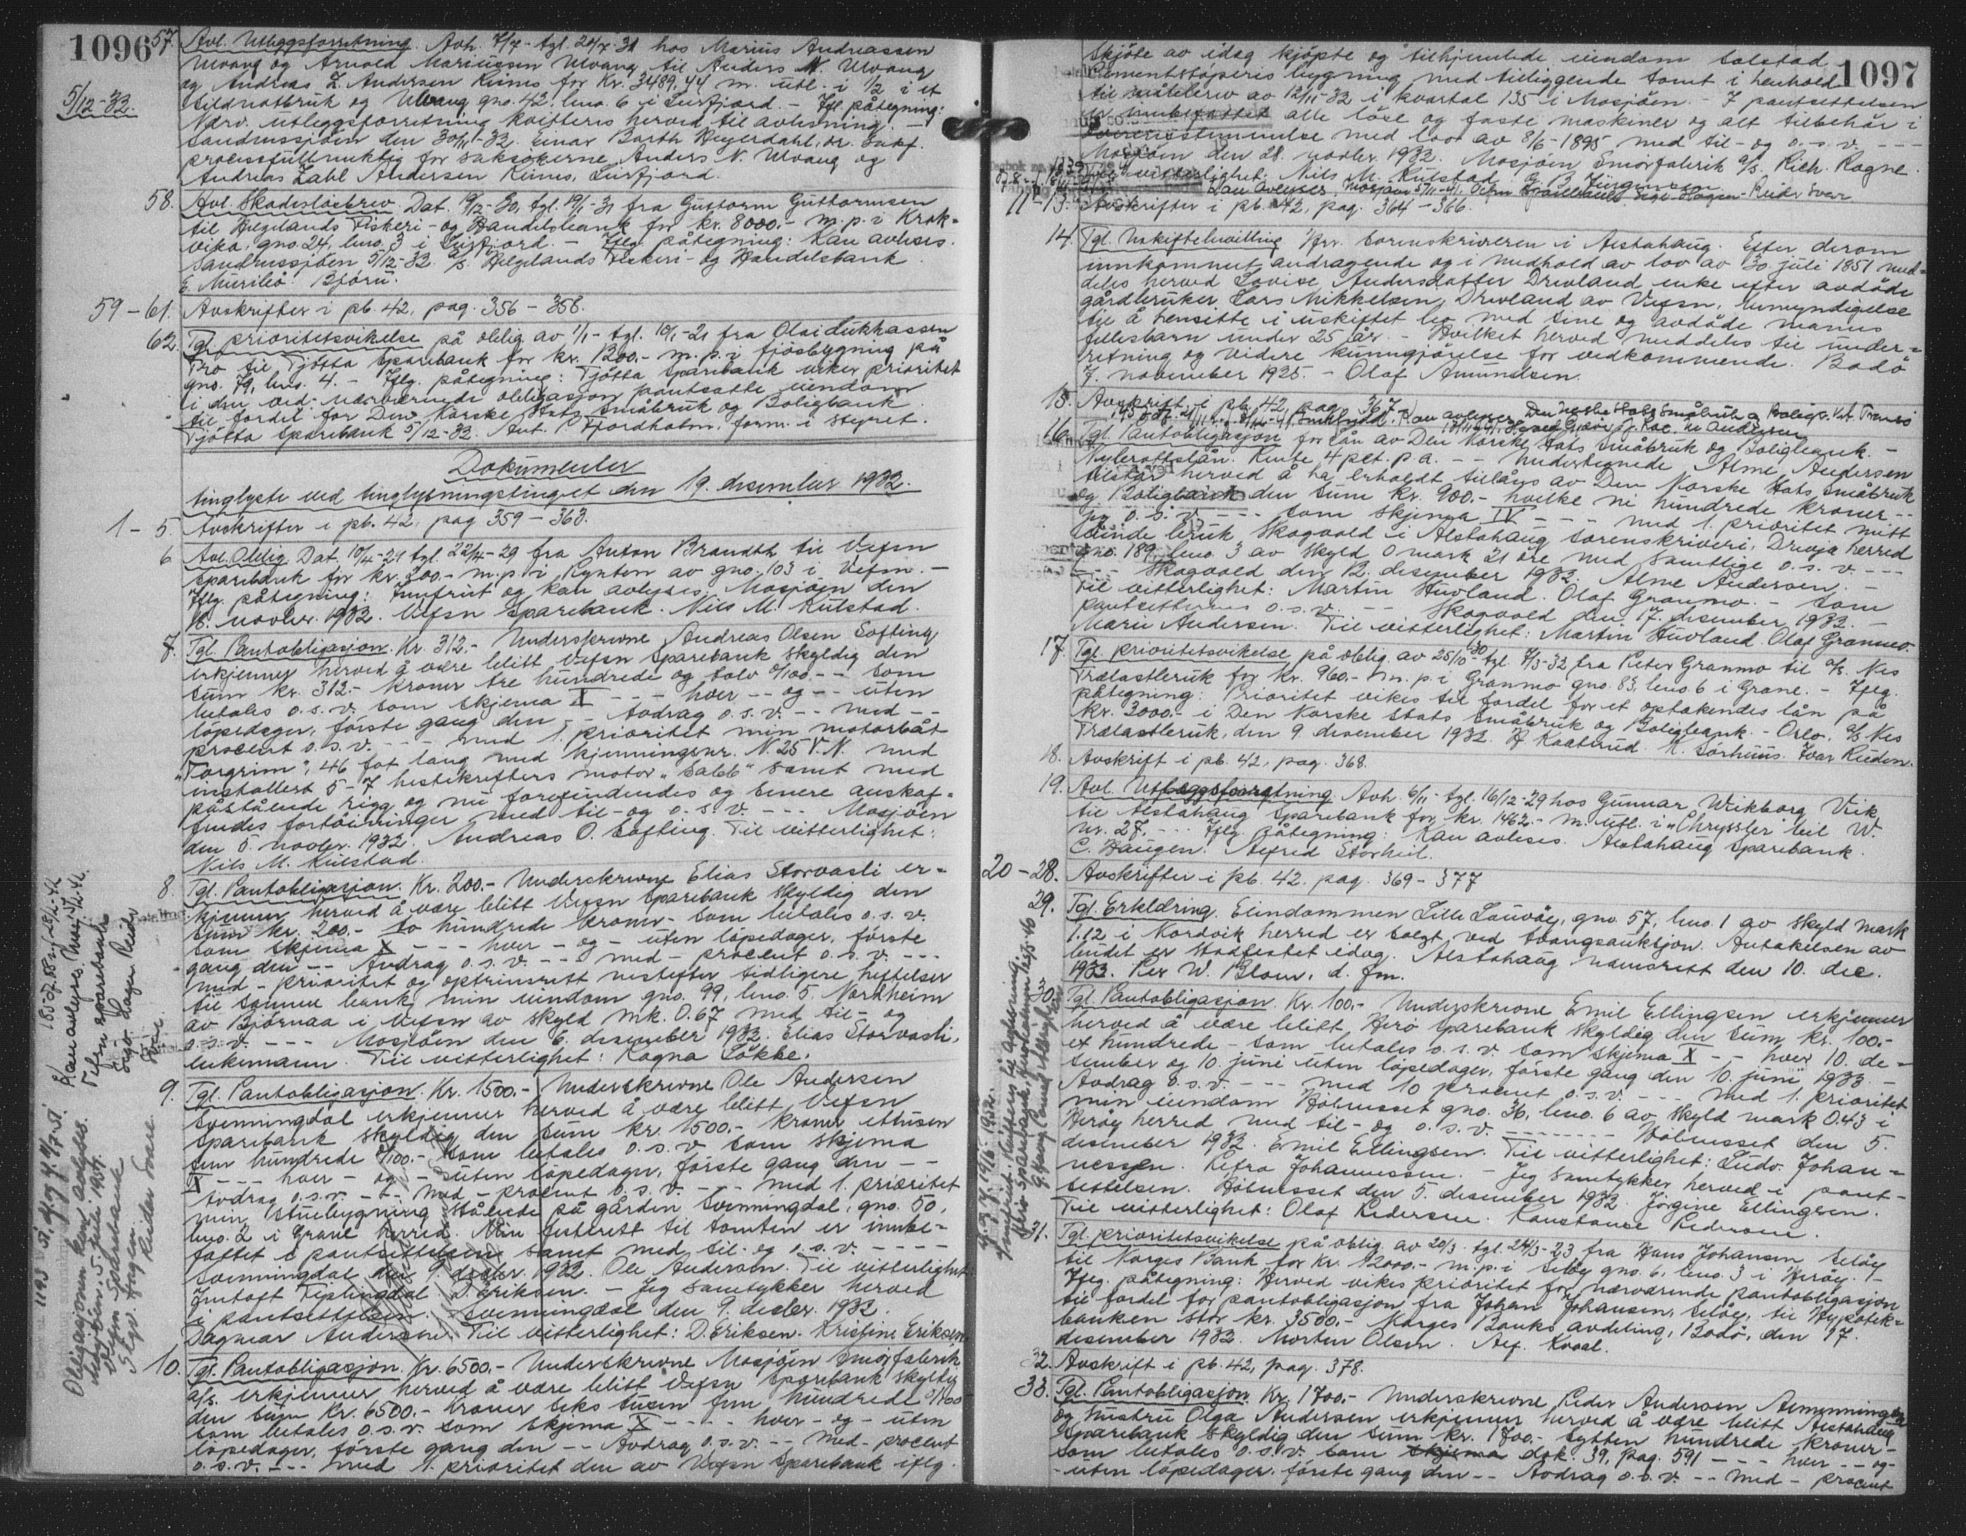 1096
57. Avl. Utleggsforretning. Avh. 7/7 - tgl. 20/7-31 hos Marius Andreassen
Ulvang og Arnold Mariussen Ulvang, til Anders N. Ulvang
og Andreas Z. Andersen Rismo for kr. 3489,44 m. utl. i 1/2 i et
5/12-32.
sildnotbruk og Ulvang gno. 42, bno. 6 i Leirfjord. - Iflg. påtegning:
Nærv. utleggsforretning kvitteres herved til avlysning. -
Sandnessjøen den 30/11-32. Einar Barth Heyerdahl, o.r. sakf.
prosessfullmektig for saksøkerne Anders N. Ulvang og
Andreas Zahl Andersen Rismo, Leirfjord.
58. Avl. Skadesløsbrev. Dat. 19/12-30, tgl. 19/1-31 fra Guttorm Guttormsen
til Helgelands Fiskeri- og Handelsbank for kr. 8000.- m. p. i Krok-
vika, gno. 24, bno. 3 i Leirfjord. - Iflg. påtegning: Kan avlyses.
Sandnessjøen 3/12-32. A/S Helgelands Fiskeri- og Handelsbank
E. Bjøru.
59 - 61. Avskrifter i pb. 42, pag. 356 - 358.
62. Tgl. prioritetsvikelse på oblig. av 1/1 - tgl. 10/1-21 fra Olai Lukkassen
Tro til Tjøtta Sparebank for kr. 1200.- m. p. i fjøsbygning på
gno. 79, bno. 4. - Iflg. påtegning: Tjøtta Sparebank viker prioritet
i den ved nærværende obligasjon pantsatte eiendom
til fordel for Den Norske Stats Småbruk og Boligbank.
Tjøtta Sparebank 5/12-32. Ant. P. Fjordholm, form. i styret.
Dokumenter
tinglyste ved tinglysningstinget den 19. desember 1932.
1 - 5. Avskrifter i pb. 42, pag 359 - 363.
6. Avl. Oblig. Dat. 10/4-29 tgl. 22/4-29 fra Anton Brandth til Vefsn
Sparebank for kr. 300.- m. p. i Kynten av gno. 103 i Vefsn. -
Iflg. påtegning: Innfriet og kan avlyses. Mosjøen den
18. novbr. 1932. Vefsn Sparebank. Nils M. Kulstad.
7. Tgl. Pantobligasjon. Kr. 312.- Underskrevne Andreas Olsen Softing
erkjenner herved å være blitt Vefsn Sparebank skyldig den
sum kr. 312.- kroner tre hundrede og tolv 0/100 - - som
betales o.s.v. som skjema X - - - hver - - og - - uten
løpedager, første gang den - - Avdrag o.s.v. - - med - -
procent o.s.v. - - - med 1. prioritet min motorbåt
"Torgrim", 46 fot lang med kjenningsnr. N. 25 V.N. med
installert 5 - 7 hestekrefters motor "Sabb" samt med
påstående rigg og nu forefindendes og senere anskaf-
fendes fortøininger med til- og o.s.v. - - - Mosjøen
den 5. novbr. 1932. Andreas O. Softing. Til vitterlighet:
Nils M. Kulstad.
8. Tgl. Pantobligasjon. Kr. 200.- Underskrevne Elias Storvasli er-
kjenner herved å være blitt Vefsn Sparebank skyldig den
sum kr. 200.- to hundrede kroner - som betales o.s.v.
som skjema X - - - hver - og - uten løpedager, første
gang den - - Avdrag o.s.v. - - - med - procent o.s.v. - - -
med - prioritet og optrinsrett nestefter tidligere heftelser
til samme bank, min eiendom gno. 99, bno. 5 Nordheim
av Bjørnaa i Vefsn av skyld mk. 0.67 med til- og
o.s.v. - - - Mosjøen den 6. desember 1932. Elias Storvasli,
enkemann. Til vitterlighet: Ragna Løkke.
9. Tgl. Pantobligasjon. Kr. 1500.- Underskrevne Ole Andersen
Svenningdal erkjenner herved å være blitt Vefsn
Sparebank skyldig den sum kr. 1500.- kroner ettusen
fem hundrede 0/100.- som betales o.s.v som skjema
X - - - hver - og - uten løpedager, første gang den - -
Avdrag o.s.v. - - med - procent o.s.v. - - - med 1. prioritet
min stuebygning stående på gården Svenningdal, gno. 50,
bno. 2 i Grane herred. Min festerett til tomten er innbe-
fattet i pantsettelsen samt med til- og o.s.v. - - - -
Svenningdal den 9. desbr. 1932. Ole Andersen. Til vitterlighet:
D. Eriksen. - Jeg samtykker herved
i pantsettelsen. Svenningdal den 9. desbr. 1932.
Dagmar Andersen. Til vitterlighet: D. Eriksen. Kristine Eriksen
10. Tgl. Pantobligasjon. Kr. 6500.- Underskrevne Mosjøen Smørfabrik
A/S. erkjenner herved å være blitt Vefsn Sparebank skyldig
den sum kr. 6500.- kroner seks tusen fem hundrede 0/100
som betales o.s.v. som skjema X - - - - hver - og - uten
løpedager, første gang den - - Avdrag o.s.v. - - med - procent
o.s.v. - - - med 1. prioritet den av Vefsn Sparebank iflg.
Kan avlyses. Mosj.
Vefsn Sparebank
Sigv. Hagen Reidar
Svare.
Obligasjonen kan avlyses.
Mosjøen, 5. juli 1951.
Vefsn Sparebank
Sigv. Hagen. Reidar Svare.
1097
skjøte av idag kjøpte og tilhjemlede eiendom Solstad
Sementstøperis bygning med tilliggende tomt i henhold
til målebrev av 12/11-32 i kvartal 135 i Mosjøen. - I pantsettelsen
er innbefattet alle løse og faste maskiner og alt tilbehør i
overensstemmelse med lov av 8/6-1895 med til- og o.s.v. - - -
Mosjøen den 28. novbr. 1932. Mosjøen Smørfabrik A/S. Rich. Rogne.
Til vitterlighet: Nils M. Kulstad. G. B. Jürgensen
Kan avlyses Mosjøen Vefsn Sparebank Sigv. Hagen - Reidar Svare
11 - 13. Avskrifter i pb. 42, pag. 364 - 366.
14. Tgl. Uskiftebevilling Hr. Sorenskriveren i Alstahaug. Efter derom
innkommet andragende og i medhold av lov av 30 juli 1851 med-
deles herved Lovise Andersdatter Drevland, enke efter avdøde
gårdbruker Lars Mikkelsen Drevland av Vefsn, bemyndigelse
til å hensitte i uskiftet bo med sine og avdøde manns
fellesbarn under 25 år. - Hvilket herved meddeles til under-
retning og videre kunngjørelse for vedkommende. Bodø
7. november 1925. - Olaf Amundsen.
15. Avskrift i pb. 42, pag. 367.
16. Tgl. Pantobligasjon for lån av Den Norske Stats Småbruk og Boligbank. -
Nybrottslån. Rente 4 pct. p.a. - - Undertegnede Alme Andersen
tilstår herved å ha erholdt tillåns av Den Norske Stats Småbruk
og Boligbank den sum kr. 900.- hvilke ni hundrede kroner - -
jeg o.s.v. - - - som skjema IV - - - med 1. prioritet mitt
eiende bruk Skogvold i Alstahaug sorenskriveri, Drevja herred
gno. 189, bno. 3 av skyld 0 mark 21 øre med samtlige o.s.v. - - -
- - - Skogvold den 12. desember 1932. Alme Andersen. -
Til vitterlighet: Martin Husland. Olaf Granmo. - Som
pantsetterens o.s.v. - - Skogvold den 17. desember 1932. -
Marie Andersen. Til vitterlighet: Martin Husland. Olaf Granmo.
17. Tgl. prioritetsvikelse på oblig. av 25/10-30 tgl. 7/3-32 fra Peter Granmo til A/S. Nes
Trælastbruk for kr. 960.- m. p. i Granmo gno. 83, bno. 6 i Grane. - Iflg.
påtegning: Prioritet vikes til fordel for et optakendes lån på
kr. 3000.- i Den Norske Stats Småbruk og Boligbank. - Oslo. A/S Nes
Trælastbruk, den 9 desember 1932. H. Kaabrud. K. Sørhuus. Ivar Ruden.
18. Avskrift i pb. 42, pag. 368.
19. Avl. Utleggsforretning Avh. 6/11 - tgl. 16/12-29 hos Gunnar Wikborg Vik
til Alstahaug Sparebank for kr. 1462.- m. utl. i "Chryssler" bil W.
nr. 27. - - Iflg. påtegning: Kan avlyses. Alstahaug Sparebank.
C. Haugen. Alfred Storheil.
20 - 28. Avskrifter i pb. 42. pag. 369 - 377
29. Tgl. Erklæring. Eiendommen Lille Lauvøy, gno. 57, bno. 1 av skyld mark
1.12 i Nordvik herred er solgt ved tvangsauksjon. Antakelsen av
budet er stadfestet idag. Alstahaug namsrett den 10. dec.
1932. Per W. Blom, d. fm.
30. Tgl. Pantobligasjon. Kr. 100.- Underskrevne Emil Ellingsen erkjenner
herved å være blitt Herø Sparebank skyldig den sum kr. 100.-
et hundrede - som betales o.s.v. som skjema X - - hver 10. de-
sember og 10 juni uten løpedager, første gang den 10. juni 1933 -
Avdrag o.s.v. - - - med 10 procent o.s.v. - - - med 1. prioritet
min eiendom Holmeset gno. 36, bno. 6 av skyld mark 0.43 i
Herøy herred med til- og o.s.v. - - - - - Holmeset den 5.
desember 1932. Emil Ellingsen. Til vitterlighet: Ludv. Johan-
nessen. Petra Johannessen. - Jeg samtykker herved i pant-
settelsen. Holmeset den 5. desember 1932. Jørgine Ellingsen.
Til vitterlighet: Olaf Pedersen. Konstanse Pedersen.
31. Tgl. prioritetsvikelse på oblig. av 20/3 - tgl. 24/3-23 fra Hans Johansen Seløy
til Norges Bank for kr. 12000.- m. p. i Seløy gno. 6, bno. 3 i Herøy. -
Iflg. påtegning: Herved vikes prioritet for nærværende pantobligasjon
til fordel for pantobligasjon fra Johan Johansen, Seløy, til Hypotek-
banken stor kr. 3500.- Norges Banks avdeling, Bodø, den 17.
desember 1932. Morten Olsen. Alf. Kvaal.
32. Avskrift i pb. 42, pag. 378.
33. Tgl. Pantobligasjon. Kr. 1700.- Underskrevne Peder Andersen
og hustru Olga Andersen erkjenner herved å være blitt Alstahaug
Sparebank skyldig den sum kr. 1700.- sytten hundrede kroner -
som betales o.s.v. som skjema dok. 39, pag. 591 - - - hver - - og -
- uten løpedager, første gang den - - Avdrag o.s.v. - - med - procent